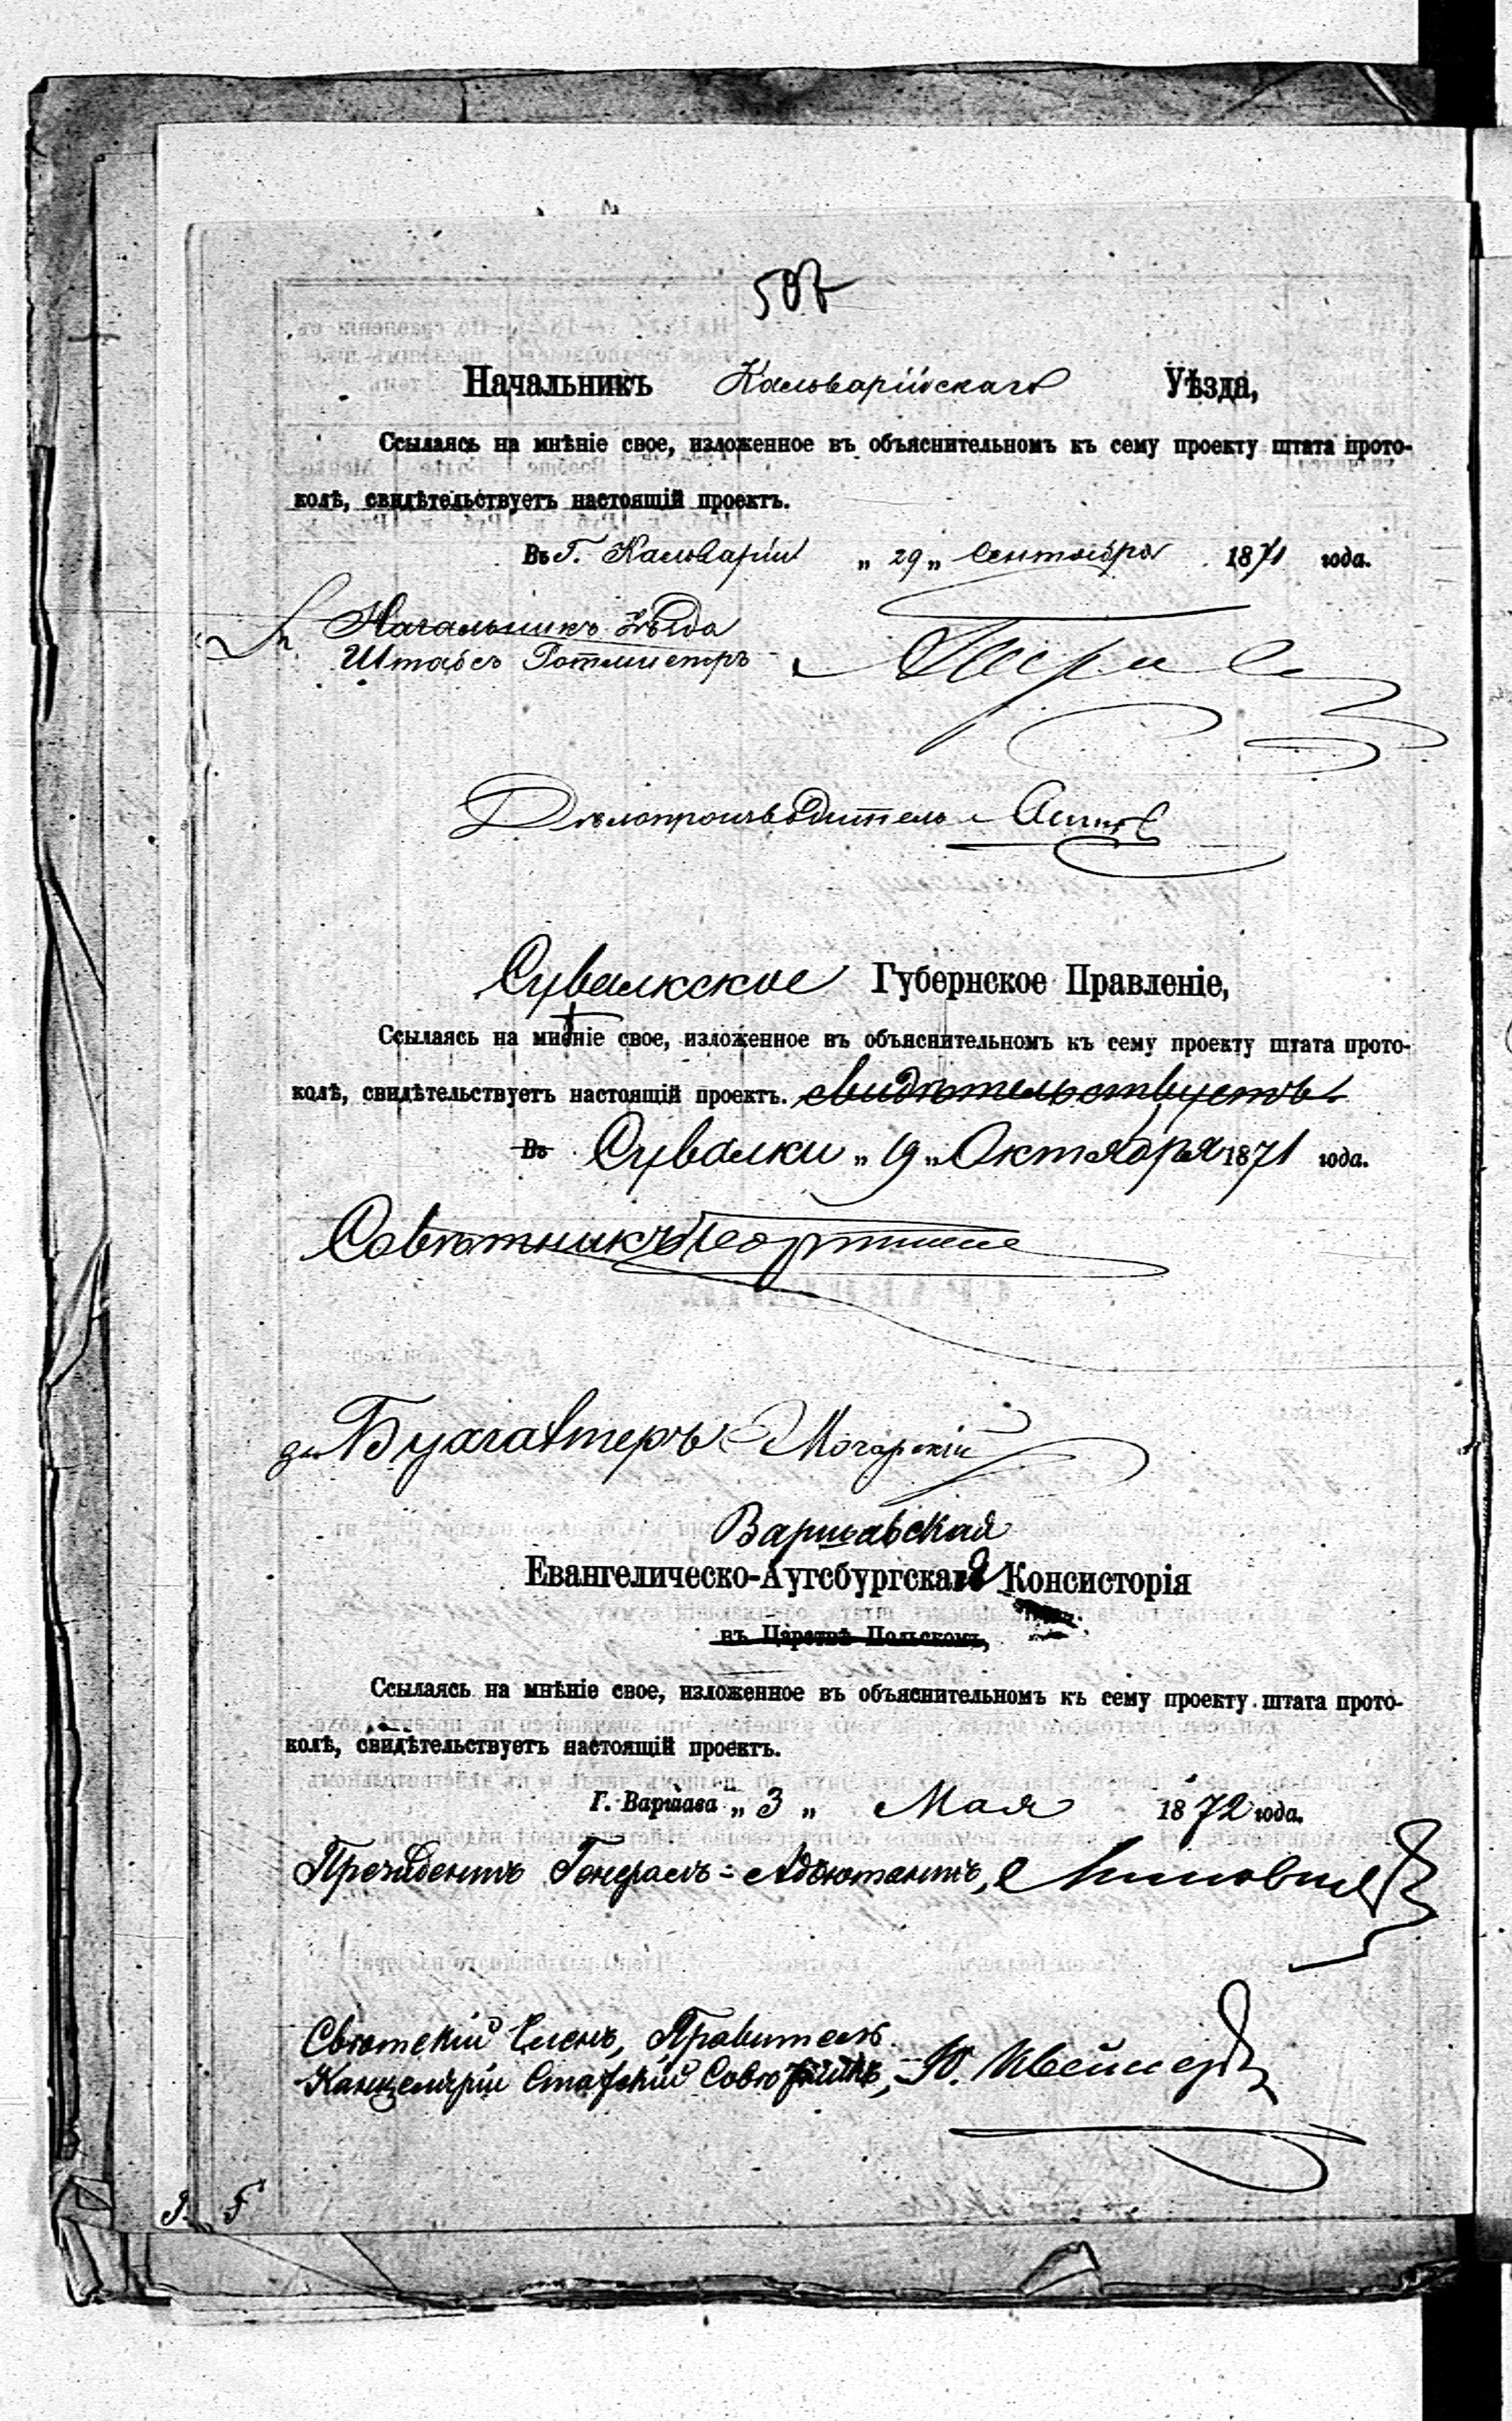 Начальникъ Кальварійскаго Уѣзда,
Ссылаясь на мнѣніе свое, изложенное въ объяснительномъ къ сему проекту штата прото-
колѣ, свидѣтельствуетъ настоящій проектъ.
Въ Г. Кальваріи „ 29 „ Сентября 1871 года.
Начальникъ Уѣзда
Штабсъ Ротмистръ
Дѣлопроизводитель
Сувалкское Губернское Правленіе,
Ссылаясь на мнѣніе свое, изложенное въ объяснительномъ къ сему проекту штата прото-
колѣ, свидѣтельствуетъ настоящій проектъ. свидѣтельствуетъ
Въ Сувалки „ 19 „ Октября 1871 года.
Совѣтникъ
Бухгалтеръ
Варшавская
Евангелическо-Аугсбургская Консисторія
въ Царствѣ Польскомъ,
Ссылаясь на мнѣніе свое, изложенное въ объяснительномъ къ сему проекту штата прото-
колѣ, свидѣтельствуетъ настоящій проектъ.
Г. Варшава „ 3 „ Мая 1872 года.
Президентъ Генералъ-Адъютантъ,
Свѣтскій Членъ, Правитель
Канцеляріи Статскій Совѣтникъ,